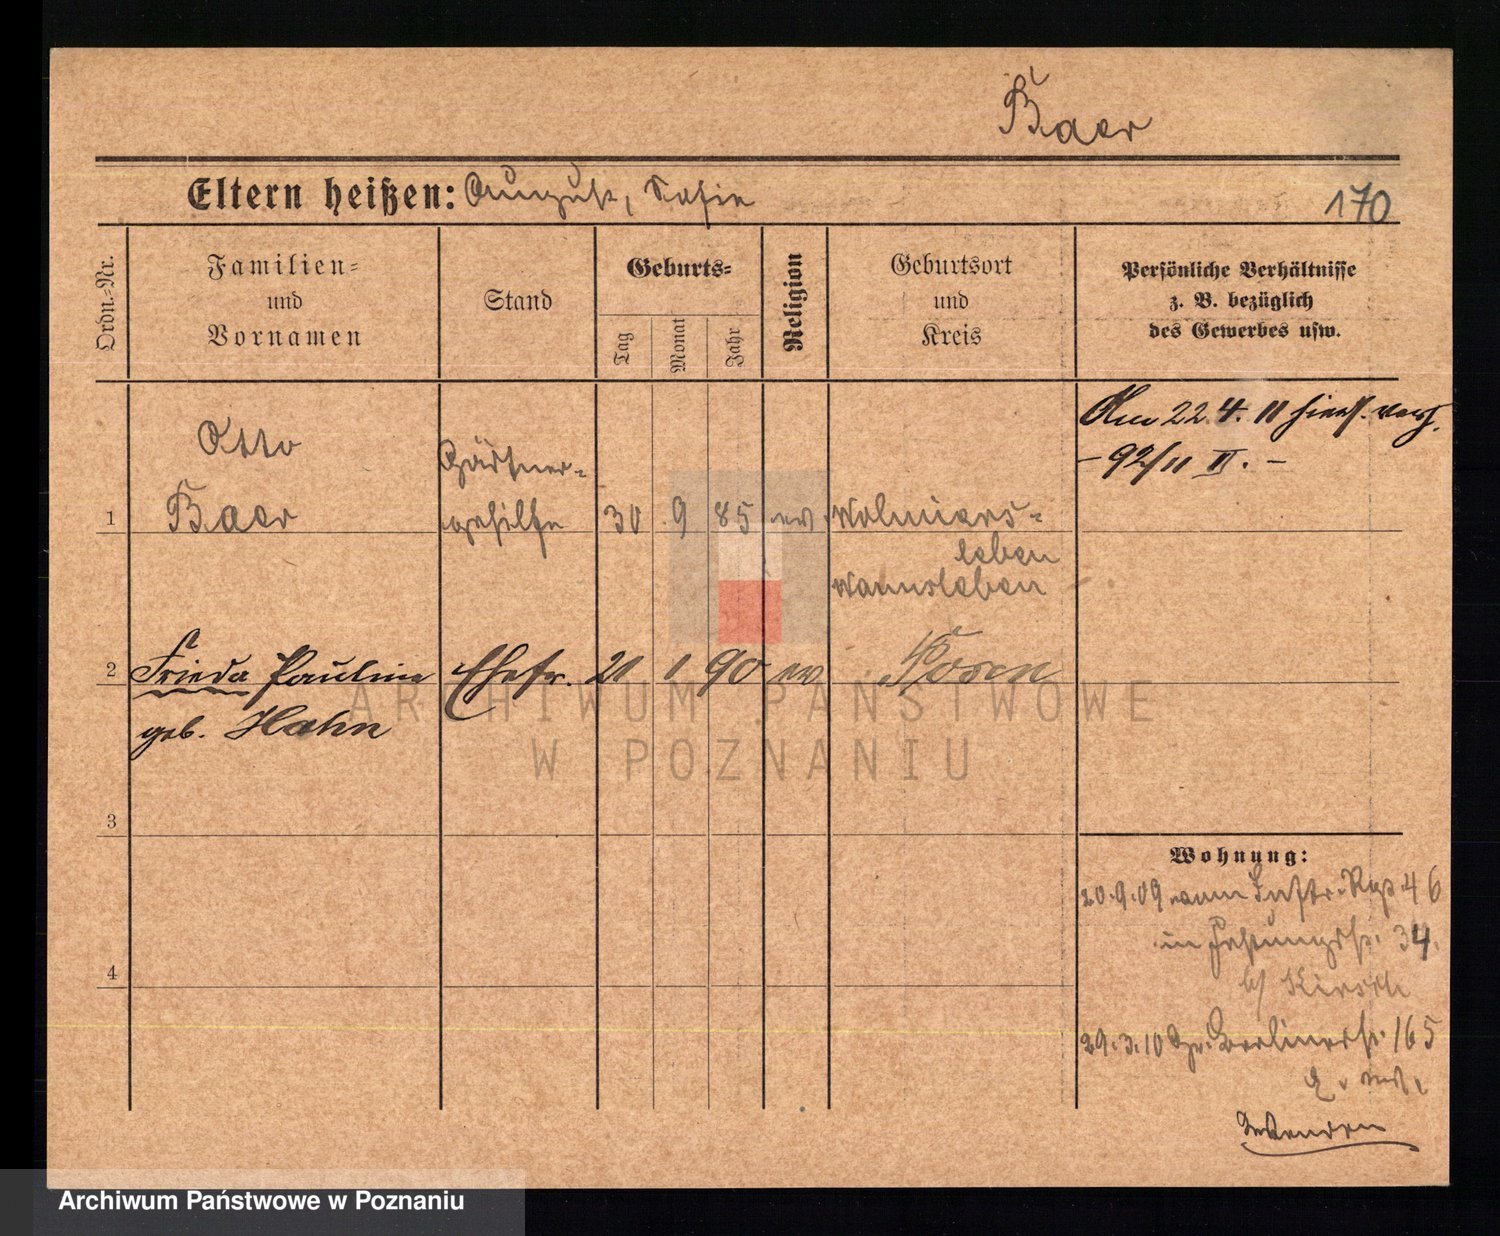 Baer
Eltern heißen: August, Sofie
170
Ordn.=Nr.
Familien=
und
Vornamen
Stand
Geburts=
Tag
Monat
Jahr
Religion
Geburtsort
und
Kreis
Persönliche Verhältnisse
z. B. bezüglich
des Gewerbes usw.
Am 22 4. 11 hierf.
– 92/11 II. –
Otto
Baer
Gärtner=
gehilfe
1
30 9 85 ev
Wolmirs=
leben
Wansleben
2
Frieda Pauline
geb. Hahn
Ehefr. 21 1 90 ev Posen
3
4
Wohnung:
20.9.09 vom Inftr. Rgt. 46
in Festungsstr. 34.
b/ Kirsch
29.3.10 Gr. Berlinerstr. 165
Wenden
ARCHIWUM PAŃSTWOWE
W POZNANIU
Archiwum Państwowe w Poznaniu